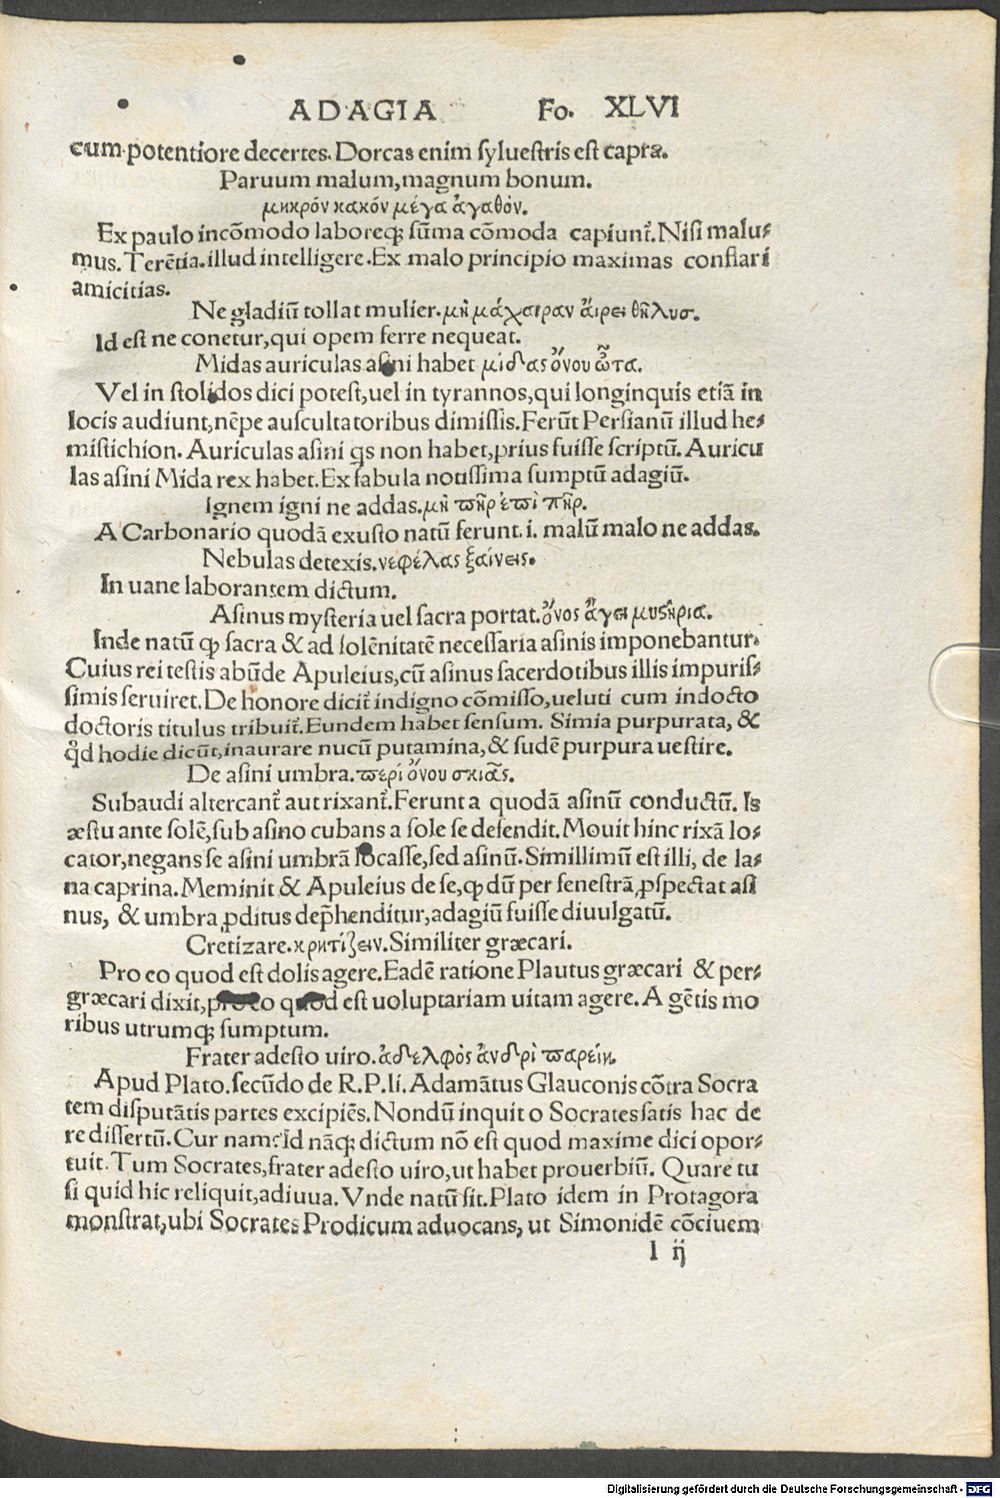 ADAGIA Fo. XLVI
cum potentiore decertes. Dorcas enim syluestris est capra.
Paruum malum, magnum bonum.
μικρόν κακόν μέγα ἀγαθόν.
Ex paulo incōmodo laboreq; sūma cōmoda capiunt̃. Nisi malu⸗
mus. Terētia. illud intelligere. Ex malo principio maximas conflari
amicitias.
Ne gladiū tollat mulier. μὴ μάχαιραν ἄιρει θῆλυσ.
Id est ne conetur, qui opem ferre nequeat.
Midas auriculas asini habet μίδας ὄνου ὦτα.
Vel in stolidos dici potest, uel in tyrannos, qui longinquis etiā in
locis audiunt, nēpe auscultatoribus dimissis. Ferūt Persianū illud he⸗
mistichion. Auriculas asini q̃s non habet, prius fuisse scriptū. Auricu
las asini Mida rex habet. Ex fabula notissima sumptū adagiū.
Ignem igni ne addas. μὴ πῆρ ἐπὶ πῆρ.
A Carbonario quodā exusto natū ferunt. i. malū malo ne addas.
Nebulas detexis. νεφέλας ξαίνεις.
In uane laborantem dictum.
Asinus mysteria uel sacra portat. ὄνος ἄγει μυστήρια.
Inde natū q̃ sacra & ad solēnitatē necessaria asinis imponebantur.
Cuius rei testis abūde Apuleius, cū asinus sacerdotibus illis impuris⸗
simis seruiret. De honore dicit̃ indigno cōmisso, ueluti cum indocto
doctoris titulus tribuit̃. Eundem habet sensum. Simia purpurata, &
q̃d hodie dicūt, inaurare nucū putamina, & sudē purpura uestire.
De asini umbra. περὶ ὄνου σκιᾶς.
Subaudi altercant̃ aut rixant̃. Ferunt a quodā asinū conductū. Is
æstu ante solē, sub asino cubans a sole se defendit. Mouit hinc rixā lo⸗
cator, negans se asini umbrā locasse, sed asinū. Simillimū est illi, de la⸗
na caprina. Meminit & Apuleius de se, q̃ dū per fenestrā ꝓspectat asi
nus, & umbra ꝓditus dep̃henditur, adagiū fuisse diuulgatū.
Cretizare. κρητίζειν. Similiter græcari.
Pro eo quod est dolis agere. Eadē ratione Plautus græcari & per⸗
græcari dixit, pro eo quod est uoluptariam uitam agere. A gētis mo
ribus utrumq; sumptum.
Frater adesto uiro. ἀδελφὸς ἀνδρὶ παρείη.
Apud Plato. secūdo de R.P. li. Adamātus Glauconis cōtra Socra
tem disputātis partes excipiēs. Nondū inquit o Socrates satis hac de
re dissertū. Cur nam? Id nāq; dictum nō est quod maxime dici opor⸗
tuit. Tum Socrates, frater adesto uiro, ut habet prouerbiū. Quare tu
si quid hic reliquit, adiuua. Vnde natū sit. Plato idem in Protagora
monstrat, ubi Socrates Prodicum aduocans, ut Simonidē cōciuem
l ij
Digitalisierung gefördert durch die Deutsche Forschungsgemeinschaft - DFG